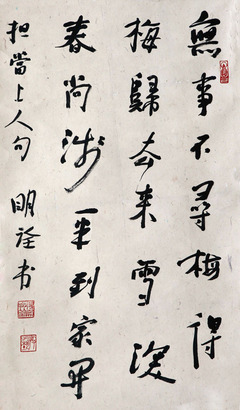 無事不尋梅得
梅歸去来雪深
春尚浅一半到家開
担當上人句 明诠书